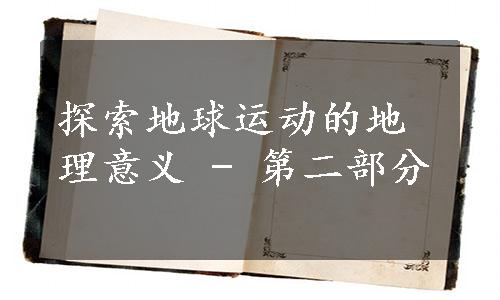 探索地球运动的地
理意义 - 第二部分